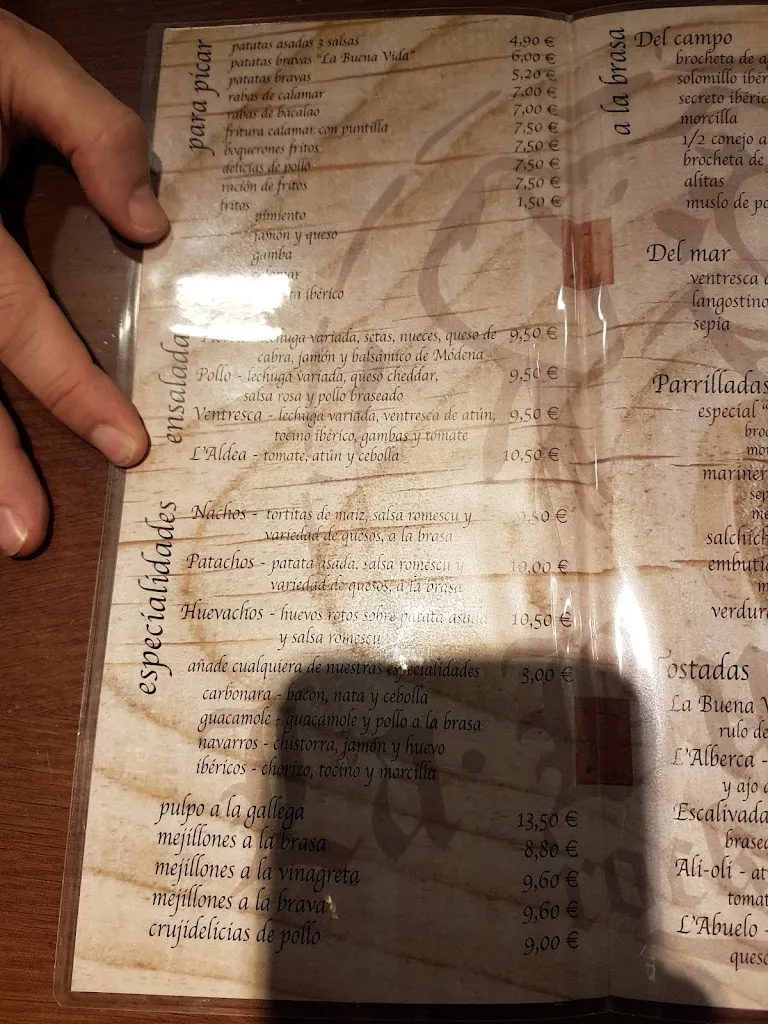 para picar
patatas asadas 3 salsas 4,90 €
patatas bravas "La Buena Vida" 6,00 €
patatas bravas 5,20 €
rabas de calamar 7,00 €
rabas de bacalao 7,00 €
fritura calamar con puntilla 7,50 €
boquerones fritos 7,50 €
delicias de pollo 7,50 €
ración de fritos 7,50 €
fritos 1,50 €
pimiento
jamón y queso
gamba
ibérico
ensalada
lechuga variada, setas, nueces, queso de 9,50 €
cabra, jamón y balsámico de Módena
Pollo - lechuga variada, queso cheddar, 9,50 €
salsa rosa y pollo braseado
Ventresca - lechuga variada, ventresca de atún, 9,50 €
tocino ibérico, gambas y tomate
L'Aldea - tomate, atún y cebolla 10,50 €
especialidades
Nachos - tortitas de maíz, salsa romescu y 9,50 €
variedad de quesos, a la brasa
Patachos - patata asada, salsa romescu y 10,00 €
variedad de quesos, a la brasa
Huevachos - huevos rotos sobre patata asada 10,50 €
y salsa romescu
añade cualquiera de nuestras especialidades 3,00 €
carbonara - bacon, nata y cebolla
guacamole - guacamole y pollo a la brasa
navarros - chistorra, jamón y huevo
ibéricos - chorizo, tocino y morcilla
pulpo a la gallega 13,50 €
mejillones a la brasa 8,80 €
mejillones a la vinagreta 9,60 €
mejillones a la brava 9,60 €
crujidelicias de pollo 9,00 €
a la brasa
Del campo
brocheta de
solomillo
secreto
morcilla
1/2 conejo a
brocheta de
alitas
muslo de
Del mar
ventresca
langostino
sepia
Parrilladas
especial
salchich
verdura
Tostadas
La Buena
rulo de
L'Alberca -
y ajo
Escalivada
Ali-oli -
L'Abuelo -